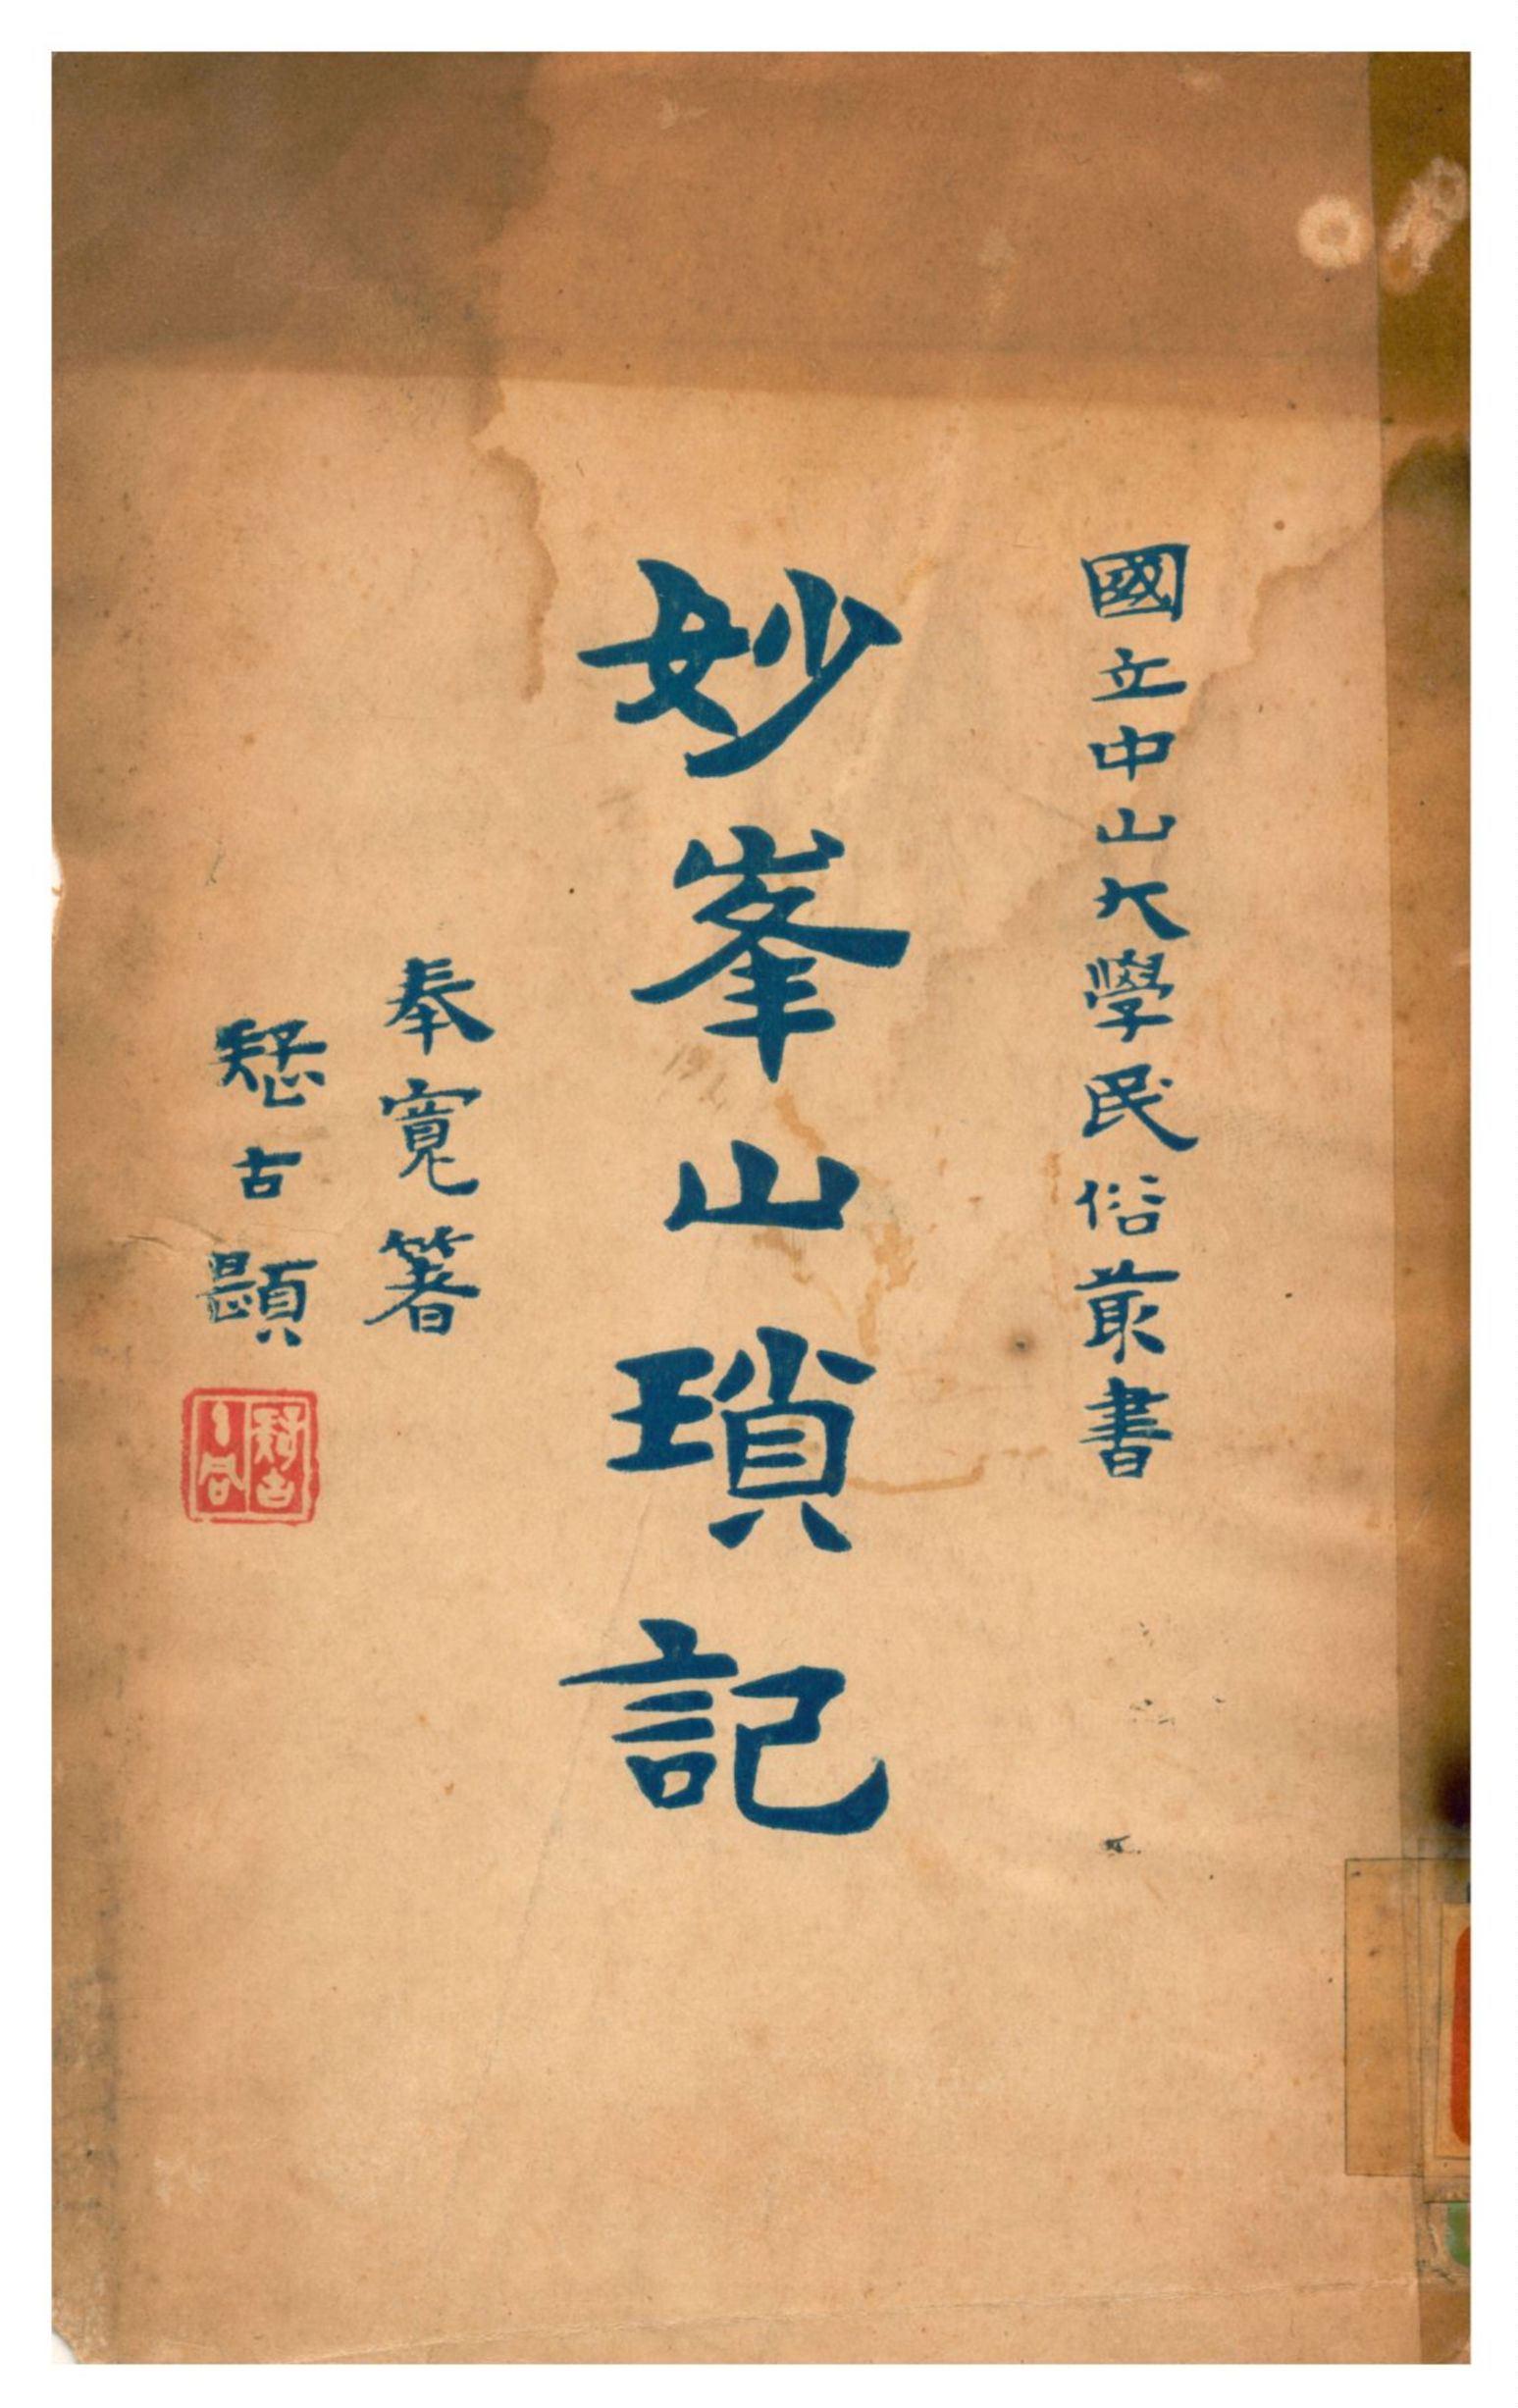 國立中山大學民俗叢書
妙峯山瑣記
奉寬箸
古題